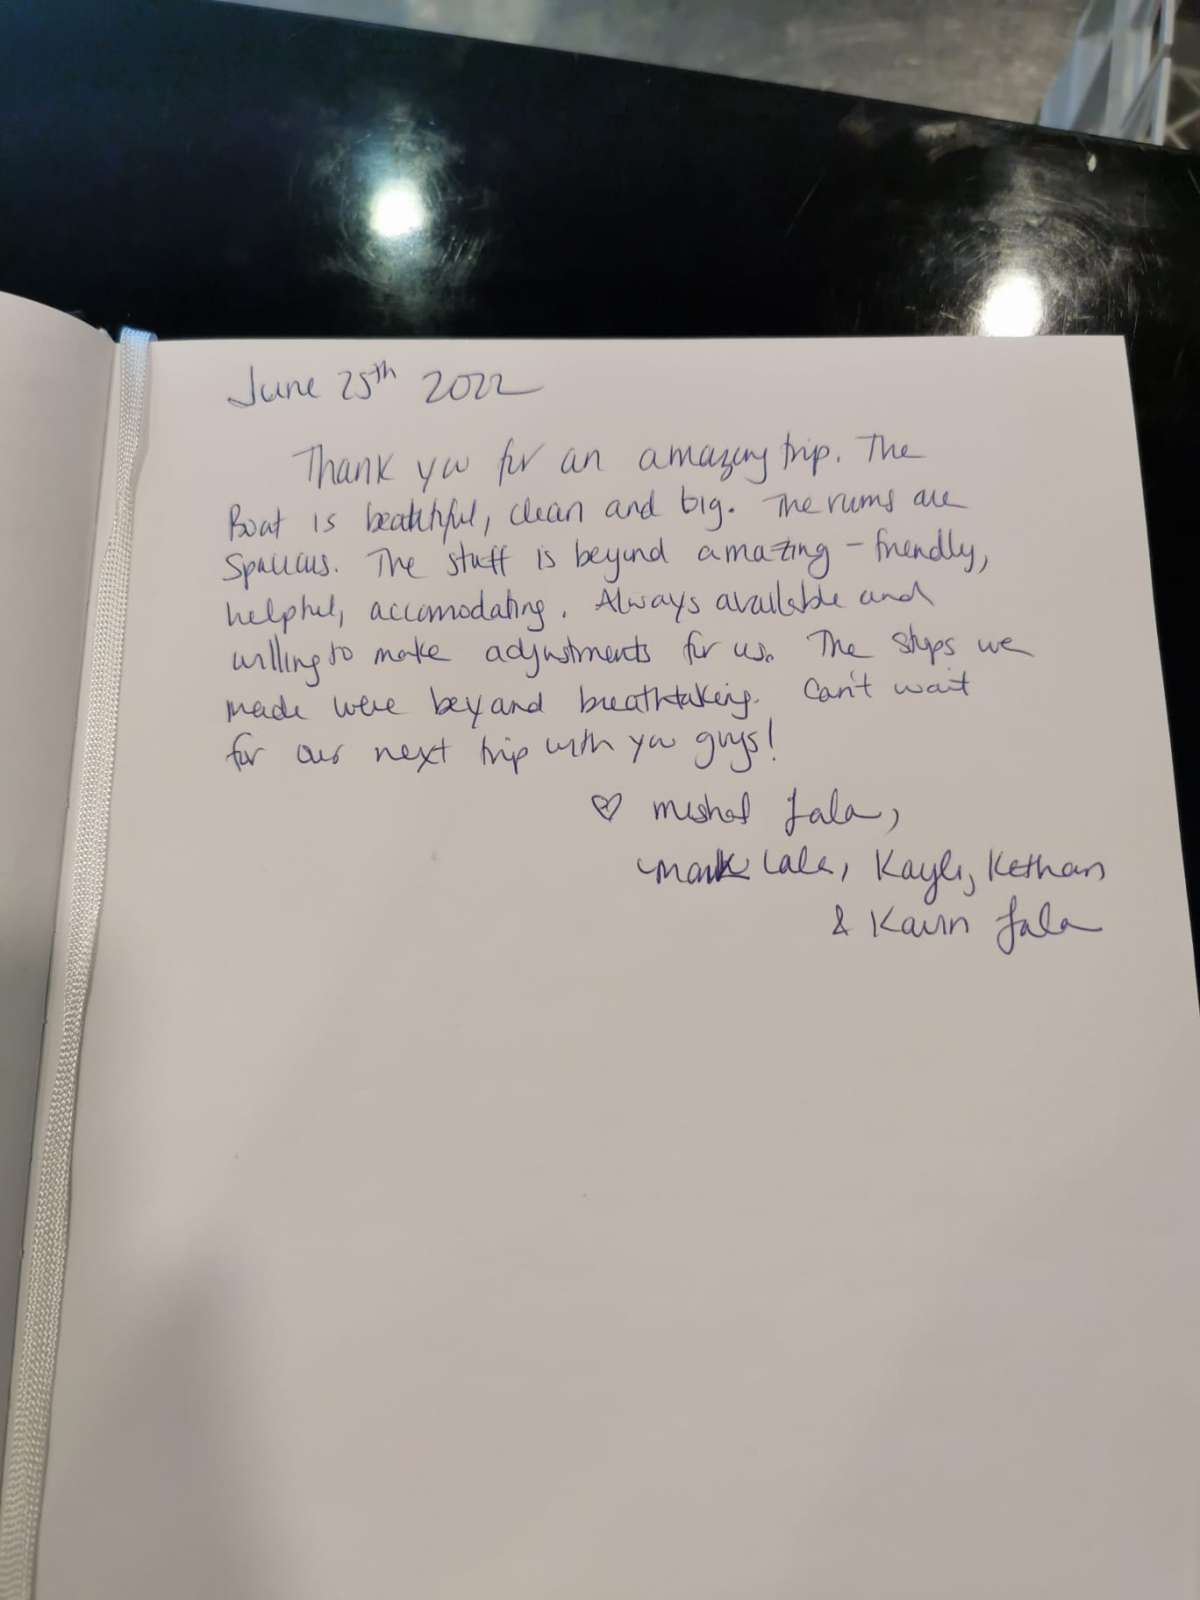 June 25th 2022
Thank you for an amazing trip. The
Boat is beautiful, clean and big. The rooms are
Spacious. The staff is beyond amazing - friendly,
helpful, accomodating. Always available and
willing to make adjustments for us. The stops we
made were beyond breathtaking. Can't wait
for our next trip with you guys!
♡
Mark Lala, Kayli, Kethan
& Lala